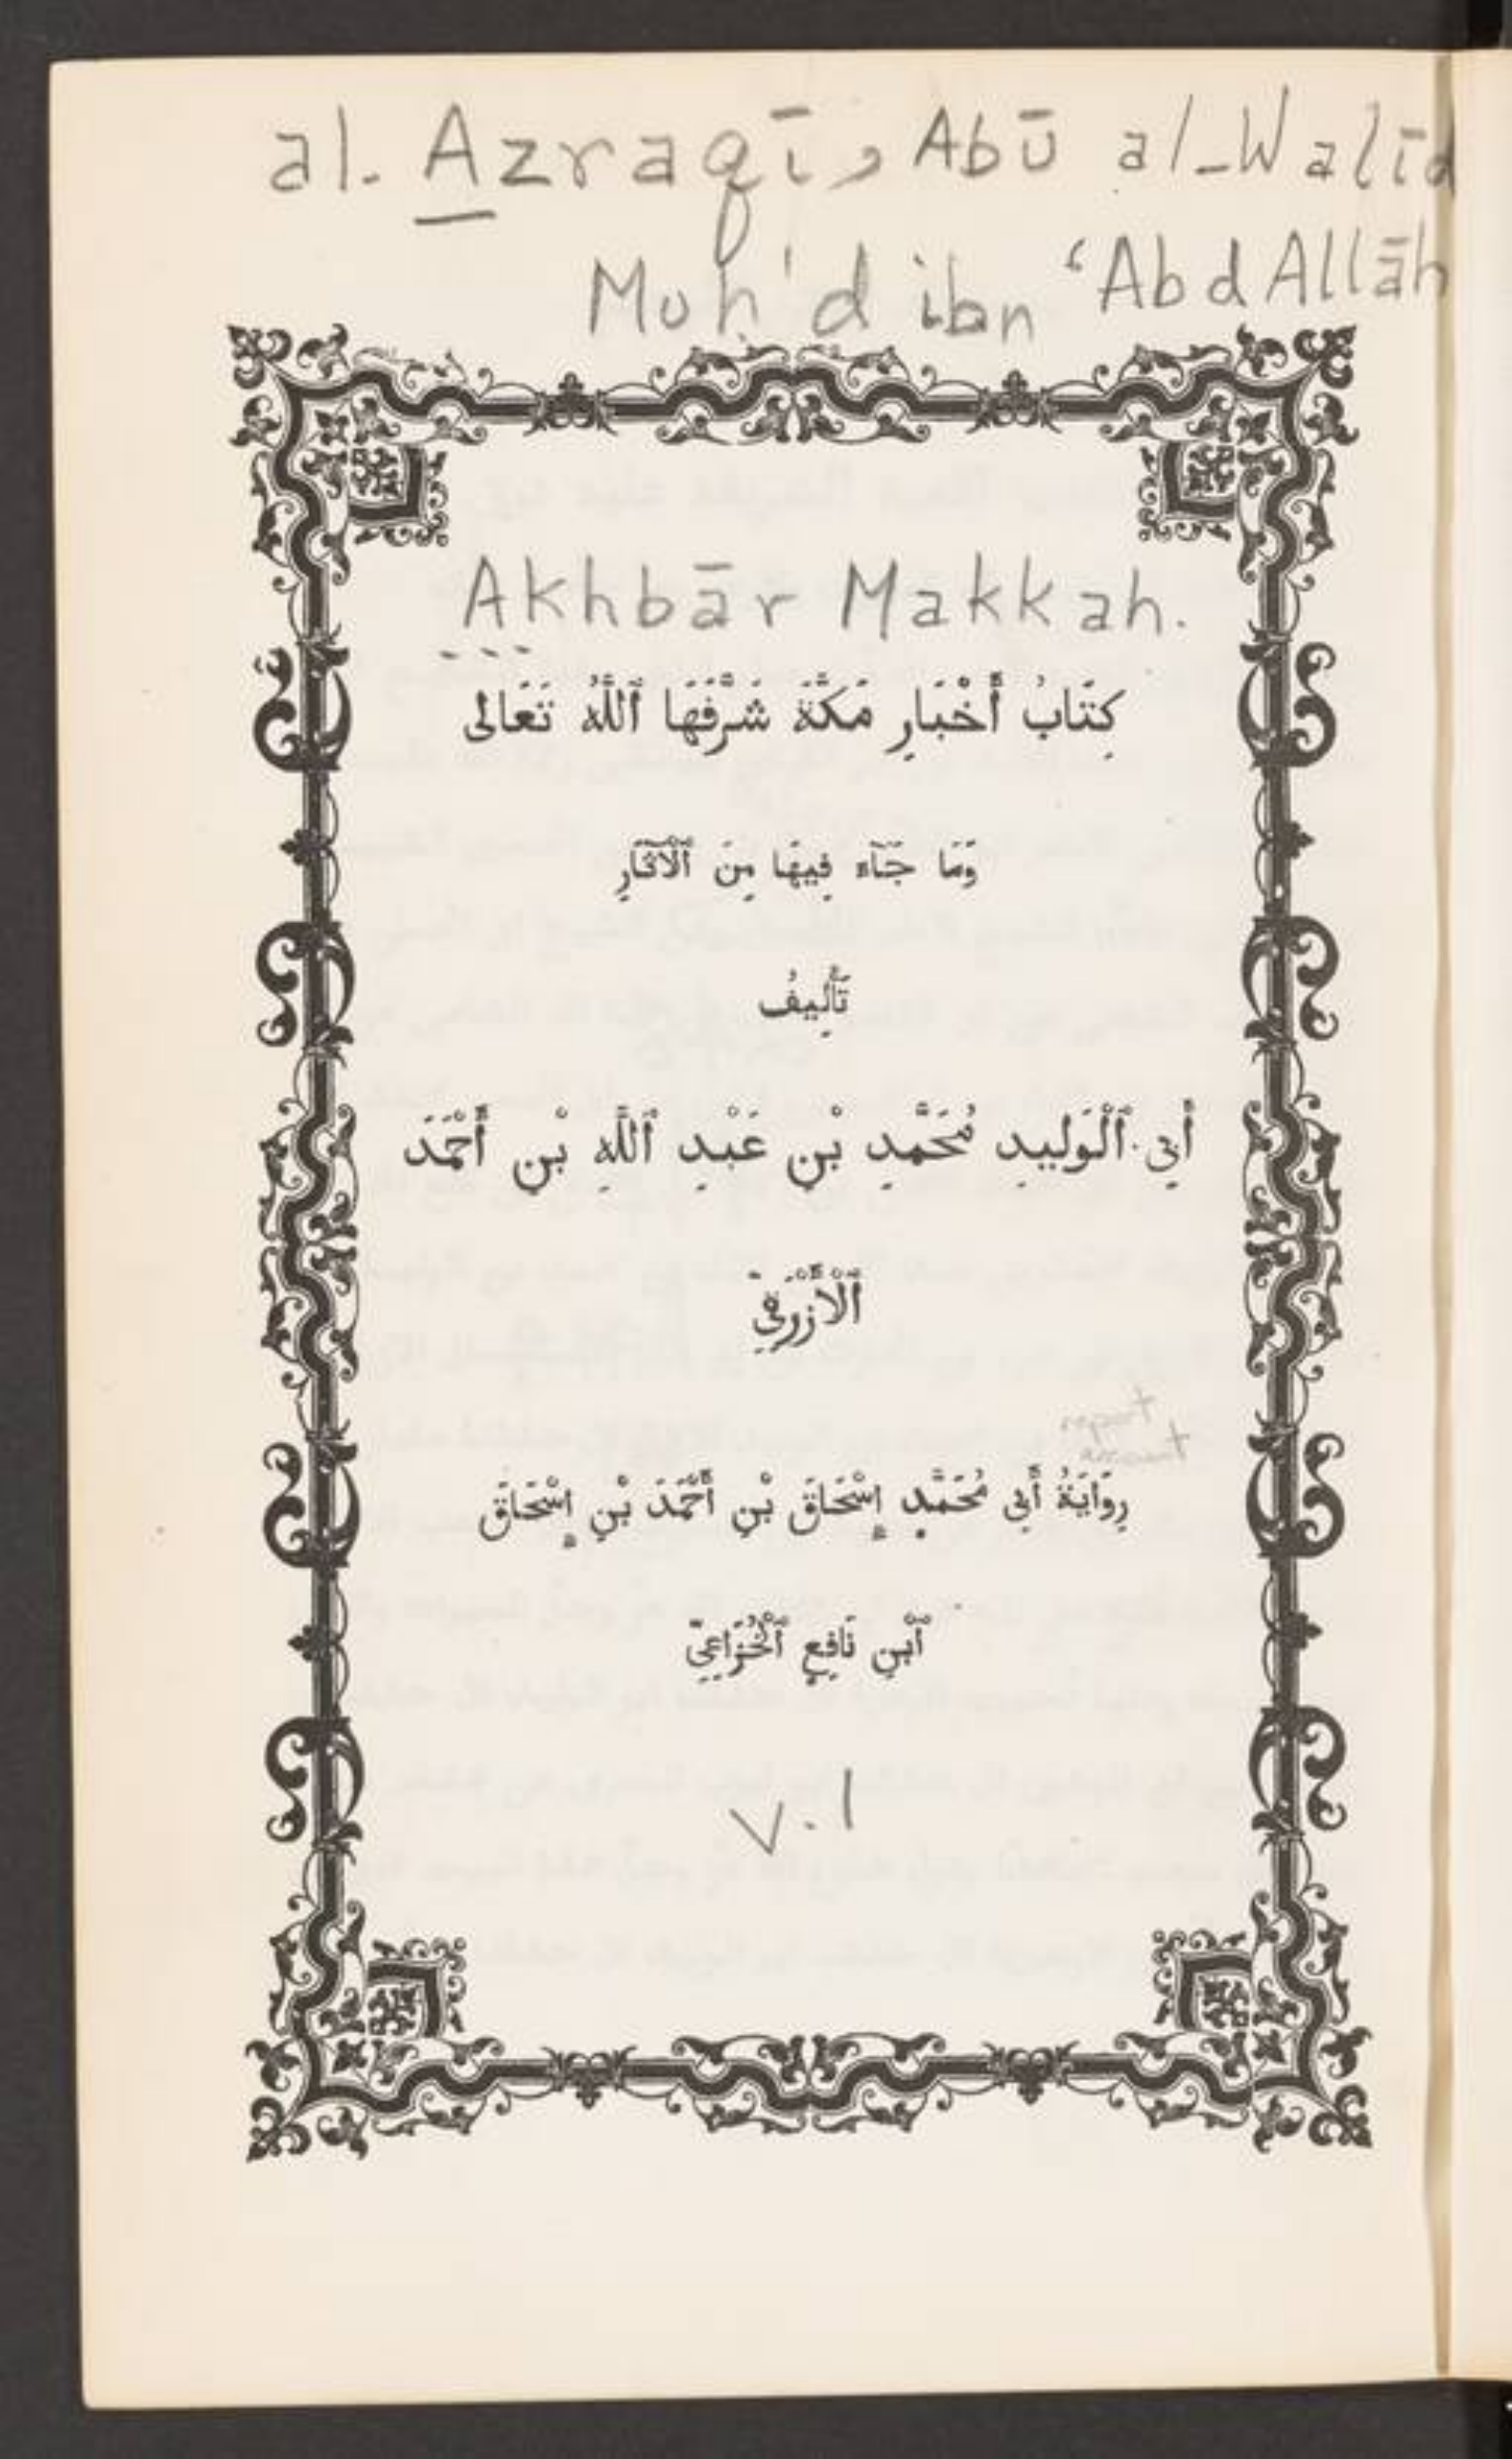 al. Azraqī, Abū al-Walīd
Muḥ'd ibn ‘Abd Allāh
Akhbār Makkah.
كِتَابُ أَخْبَارِ مَكَّةَ شَرَّفَهَا ٱللَّهُ تَعَالى
وَمَا جَآء فِيهَا مِنَ ٱلْآثَارِ
تَأْلِيفُ
أَبِي ٱلْوَلِيدِ مُحَمَّدِ بْنِ عَبْدِ ٱللَّهِ بْنِ أَحْمَدَ
ٱلْأَزْرَقِيِّ
رِوَايَةُ أَبِي مُحَمَّدٍ إِسْحَاقَ بْنِ أَحْمَدَ بْنِ إِسْحَاقَ
ٱبْنِ نَافِعٍ ٱلْخُزَاعِيِّ
v.1